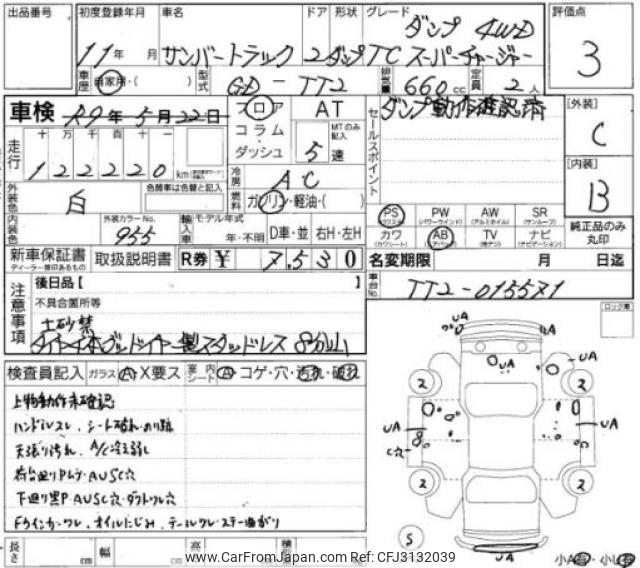 出品番号
初度登録年月 車名 ドア 形状 グレード 評価点
11年 月 サンバートラック 2 ダンプ TC ダンプ 4WD スーパーチャージャー 3
車歴 自家用・( ) 型式 GD-TT2 排気量 660cc 定員 2人
車検 R9年5月22日 フロア AT
セールスポイント ダンプ動作確認済
[外装] C
走行 十 万 千 百 十 一
122220 km
コラム・ダッシュ 5速 MTのみ記入
冷房 AC
[内装] B
外装色 白 色替車は色替と記入
燃料 ガソリン・軽油・( )
内装色 外装カラーNo. 955
輸入車 モデル年式 年・不明 D車・並 右H・左H
PS (パワステ) PW (パワーウインド) AW (アルミホイル) SR (サンルーフ)
カワ (カワシート) AB (エアバッグ) TV (横ナシ) ナビ (ナビゲーション)
純正品のみ丸印
新車保証書 ディーラー捺印あるもの 取扱説明書 R券 ¥ 7,530
名変期限 月 日迄
車台No. TT2-015571
注意事項 後日品【 】
不具合箇所等
土砂禁
タイヤ4本グッドイヤー製スタッドレス 8分山
ロック車
検査員記入 ガラス A・X要ス 室内シート A・コゲ・穴・汚れ・破れ
上物動作未確認
ハンドルスレ、シート破れ・のり跡
天張り汚れ、A/C冷え弱し
荷台廻りPムラ・AUSC穴
下廻り黒P・AUSC穴・ダクトワレ穴
Fウインカーワレ、オイルにじみ、テールワレ・ステー曲がり
UA UA UA
2 2
UA UA
C穴
2 2
S UA
長さ cm 幅 cm 高 cm 積 小A有・小U有
www.CarFromJapan.com Ref:CFJ3132039